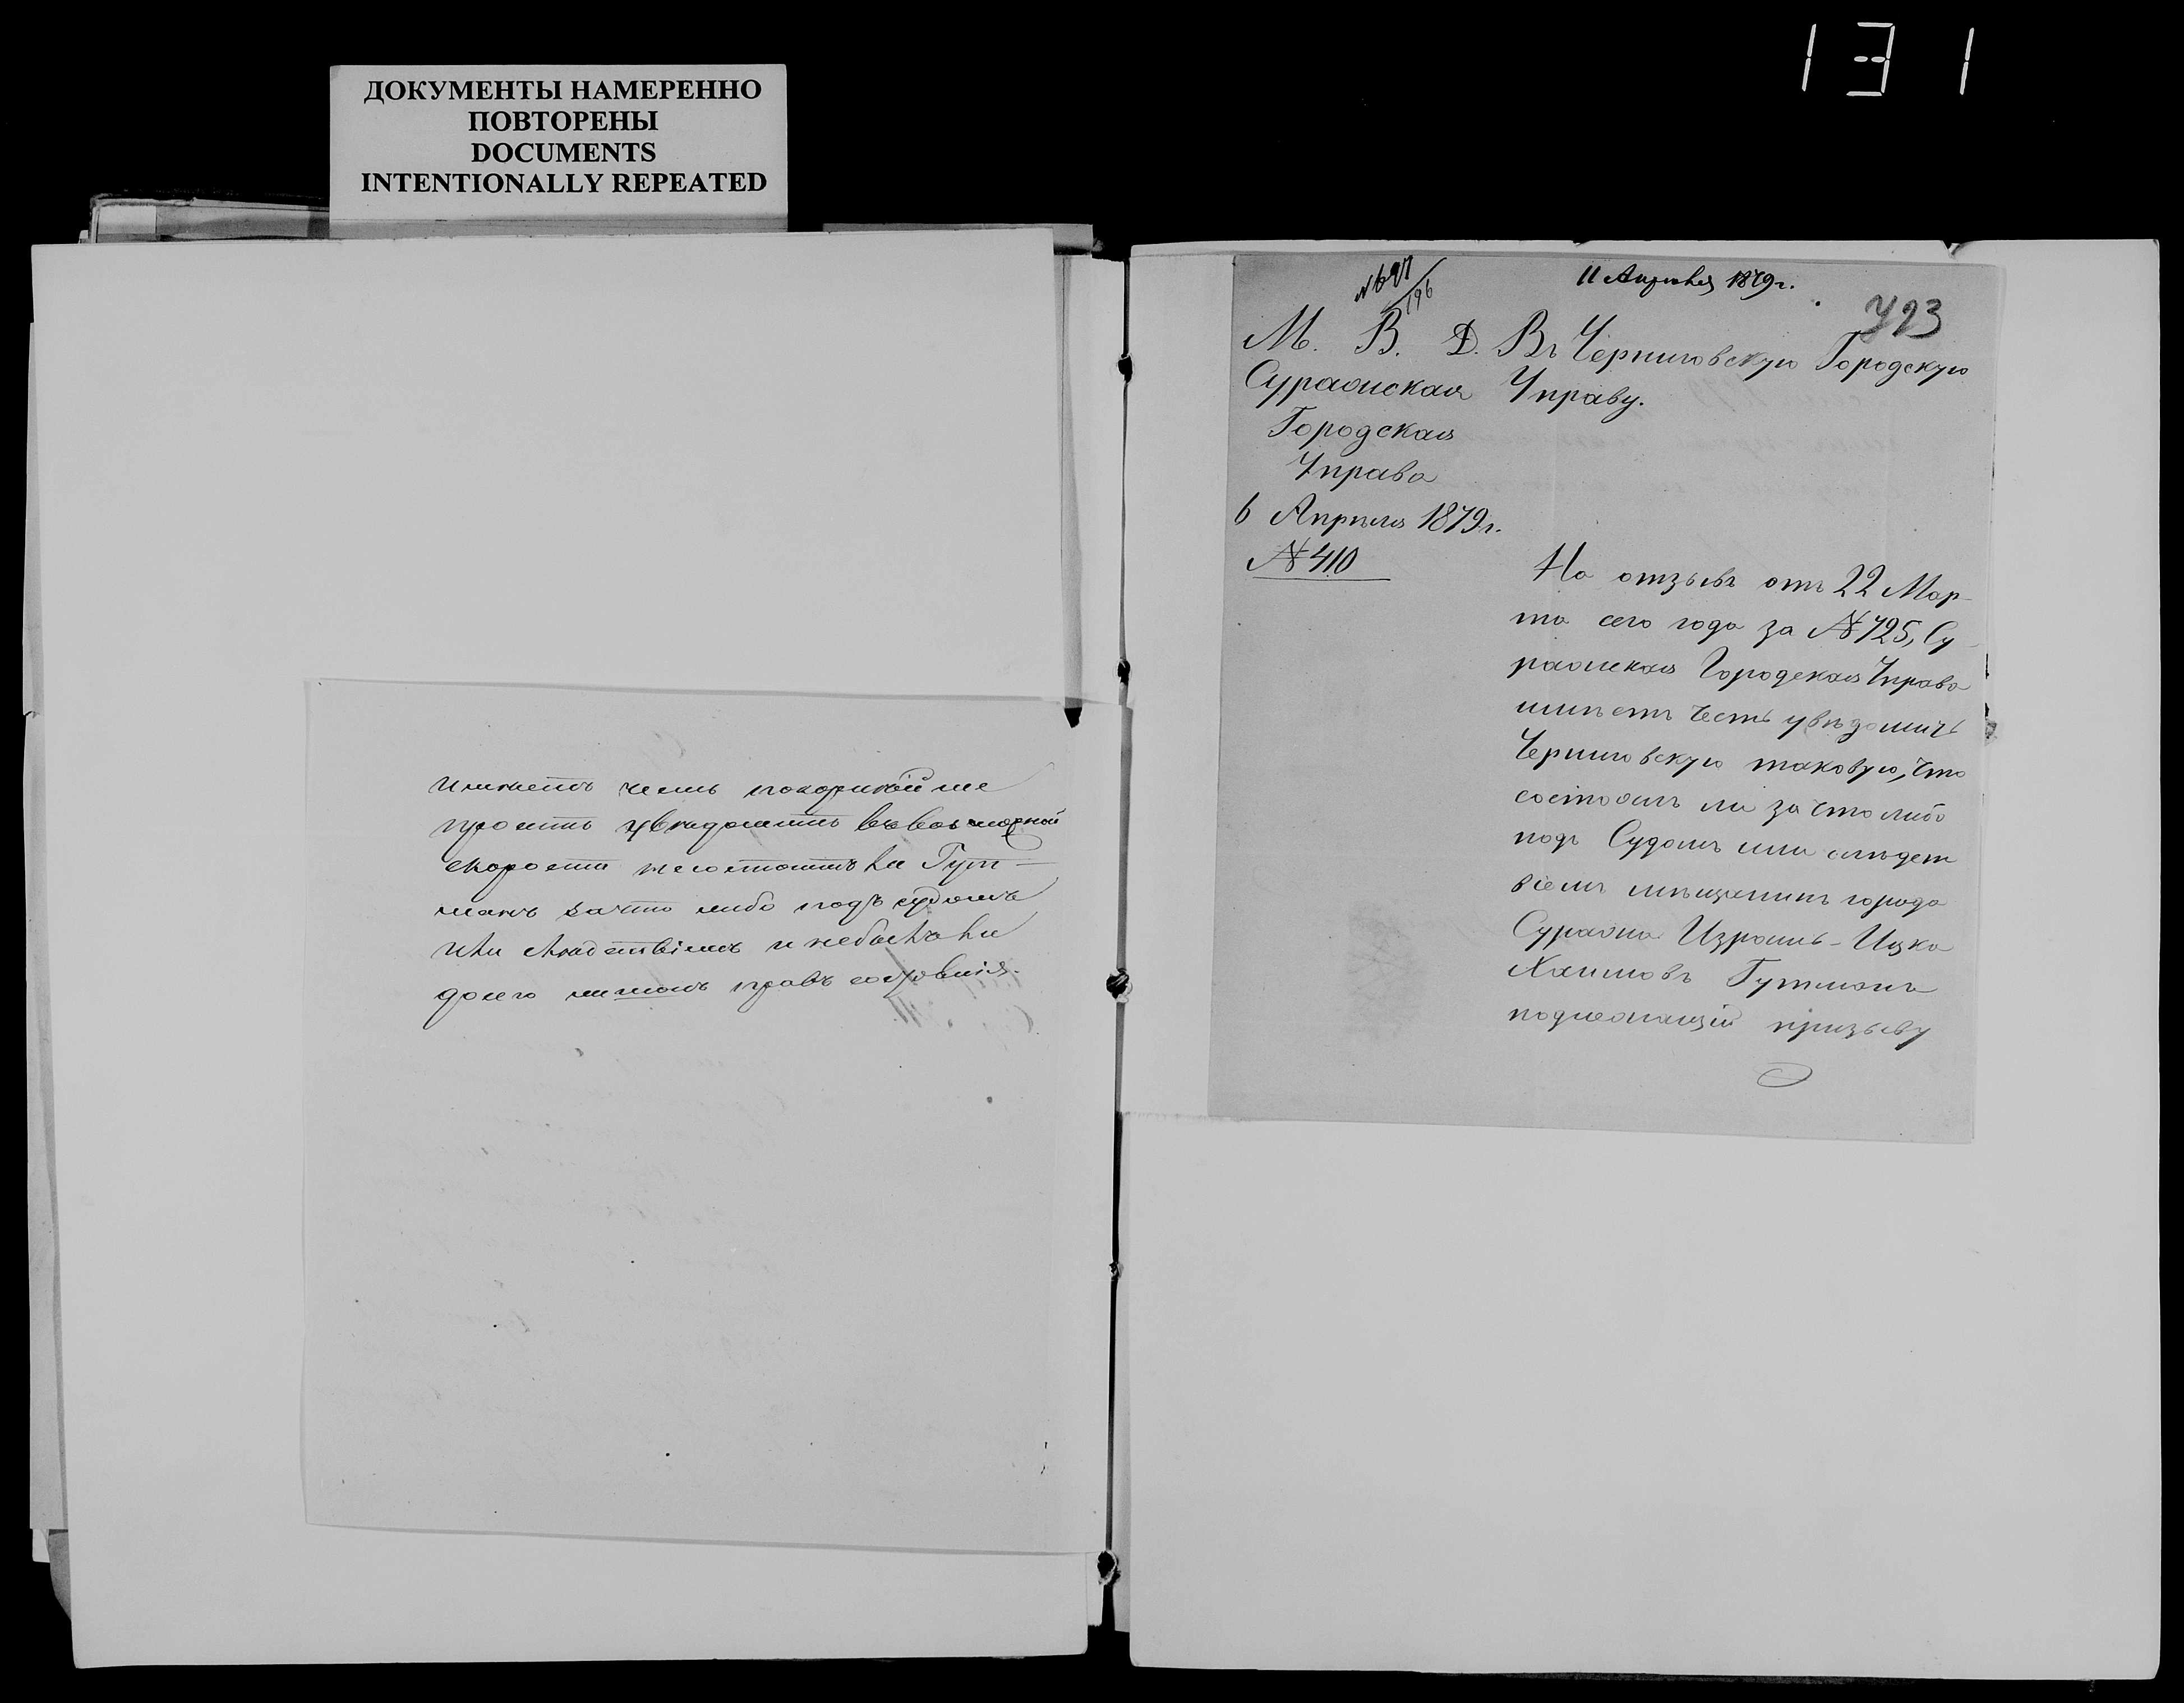 131
ДОКУМЕНТЫ НАМЕРЕННО
ПОВТОРЕНЫ
DOCUMENTS
INTENTIONALLY REPEATED
имѣетъ честь покорнѣйше
просить увѣдомить въ возможной
скорости несостоитъ ли Гут-
манъ зачто либо подъ судомъ
или слѣдствіемъ и небылъ ли
долего лишонъ правъ состоянія.
№697/196
11 Апрѣля 1879 г.
723
М. В. Д.
Суражская
Городская
Управа
6 Апрѣля 1879 г.
№ 410
Въ Черниговскую Городскую
Управу.
На отзывъ отъ 22 Мар-
та сего года за № 725, Су-
ражская Городская Управа
имѣетъ честь увѣдомить
Черниговскую таковую, что
состоитъ ли за что либо
подъ Судомъ или слѣдст
віемъ мѣщанинъ города
Суража Израиль-Ицка
Хаимовъ Гутманъ
подлежащій призыву